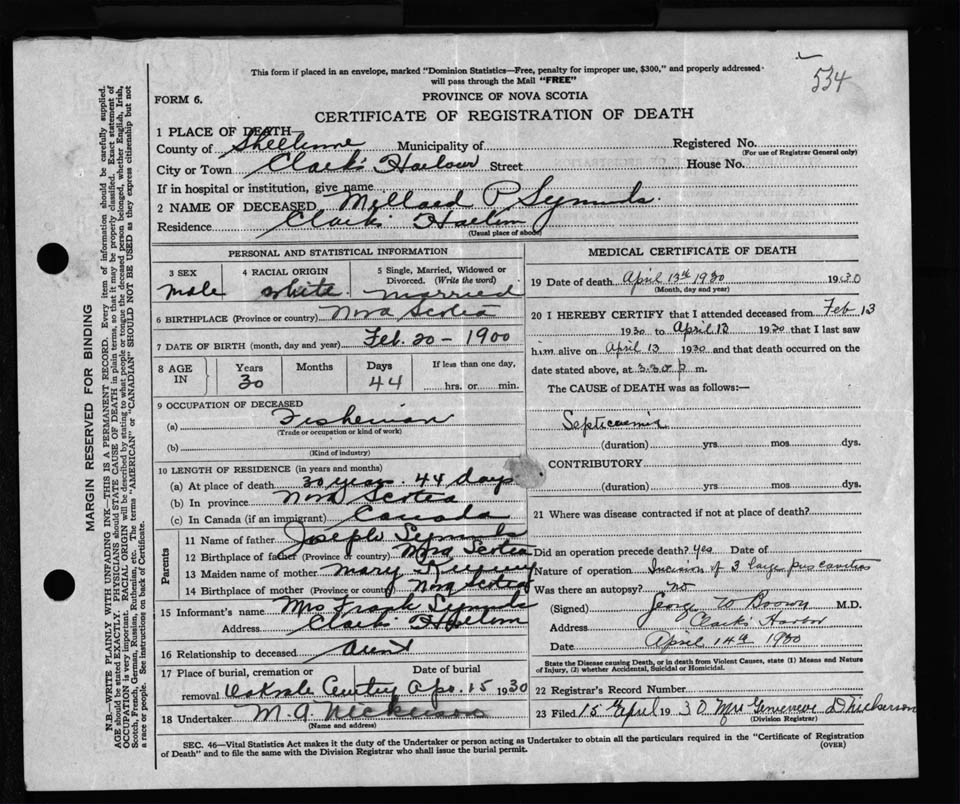 534
This form if placed in an envelope, marked "Dominion Statistics—Free, penalty for improper use, $300," and properly addressed
will pass through the Mail "FREE"
FORM 6.
PROVINCE OF NOVA SCOTIA
CERTIFICATE OF REGISTRATION OF DEATH
1 PLACE OF DEATH—
County of Shelburne Municipality of Registered No.
(For use of Registrar General only)
City or Town Clark's Harbour Street House No.
If in hospital or institution, give name
2 NAME OF DECEASED Millard P Symonds.
Residence Clark's Harbour
(Usual place of abode)
PERSONAL AND STATISTICAL INFORMATION
3 SEX male
4 RACIAL ORIGIN white.
5 Single, Married, Widowed or Divorced. (Write the word) married
6 BIRTHPLACE (Province or country) Nova Scotia
7 DATE OF BIRTH (month, day and year) Feb. 20 - 1900
8 AGE IN Years 30 Months Days 44 If less than one day, hrs. or min.
9 OCCUPATION OF DECEASED
(a) Fisherman
(Trade or occupation or kind of work)
(b)
(Kind of industry)
10 LENGTH OF RESIDENCE (in years and months)
(a) At place of death 30 years. 44 days
(b) In province Nova Scotia
(c) In Canada (if an immigrant) Canada
Parents
11 Name of father Joseph Symonds
12 Birthplace of father (Province or country) Nova Scotia
13 Maiden name of mother Mary
14 Birthplace of mother (Province or country) Nova Scotia
15 Informant's name Mrs Frank Symonds
Address Clark's Harbour
16 Relationship to deceased Aunt
17 Place of burial, cremation or removal Date of burial
Cemetery Apr. 15 1930
18 Undertaker M. A. Nickerson
(Name and address)
MEDICAL CERTIFICATE OF DEATH
19 Date of death April 13th 1930 1930
(Month, day and year)
20 I HEREBY CERTIFY that I attended deceased from Feb 13
1930 to April 13 1930 that I last saw
him alive on April 13 1930 and that death occurred on the
date stated above, at 3.30 p m.
The CAUSE of DEATH was as follows:—
Septicaemia
(duration) yrs. mos. dys.
CONTRIBUTORY
(duration) yrs. mos. dys.
21 Where was disease contracted if not at place of death?
Did an operation precede death? Yes Date of
Nature of operation Incision of 3 large pus cavities
Was there an autopsy? no
(Signed) George W Brown M.D.
Address Clark's Harbor
Date April 14th 1930
State the Disease causing Death, or in death from Violent Causes, state (1) Means and Nature
of Injury, (2) whether Accidental, Suicidal or Homicidal.
22 Registrar's Record Number
23 Filed 15 April 1930 Mrs Genevieve D Nickerson
(Division Registrar)
SEC. 46—Vital Statistics Act makes it the duty of the Undertaker or person acting as Undertaker to obtain all the particulars required in the "Certificate of Registration
of Death" and to file the same with the Division Registrar who shall issue the burial permit.
(OVER)
MARGIN RESERVED FOR BINDING
N.B.—WRITE PLAINLY WITH UNFADING INK—THIS IS A PERMANENT RECORD. Every item of information should be carefully supplied.
AGE should be stated EXACTLY. PHYSICIANS should STATE CAUSE OF DEATH in plain terms, so that it may be properly classified. Exact statement of
OCCUPATION is very important. RACIAL ORIGIN will be described by stating to what people or tongue the deceased person belonged, whether English, Irish,
Scotch, French, German, Russian, Ruthenian, etc. The terms "AMERICAN" or "CANADIAN" SHOULD NOT BE USED as they express citizenship but not
a race or people. See instructions on back of Certificate.